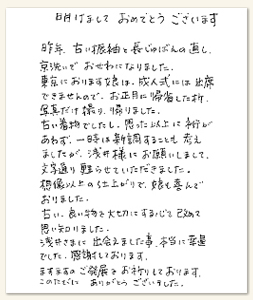 明けまして おめでとう ございます
昨年、古い振袖と長じゅばんの直し、
京洗いで おせわになりました。
東京におります娘は、成人式には出席
できませんので、お正月に帰省した折、
写真だけ撮り、帰りました。
古い着物でしたし、思った以上に裄が
あわず、一時は新調することも考え
ましたが、浅井様にお願いしまして、
文字通り 甦らせていただきました。
想像以上の仕上がりで、娘も喜んで
おりました。
古い、良い物を大切にする心を改めて
思い知りました。
浅井さまに 出会えました事、本当に幸運
でした。感謝しております。
ますますのご発展を お祈りしております。
このたびは ありがとう ございました。